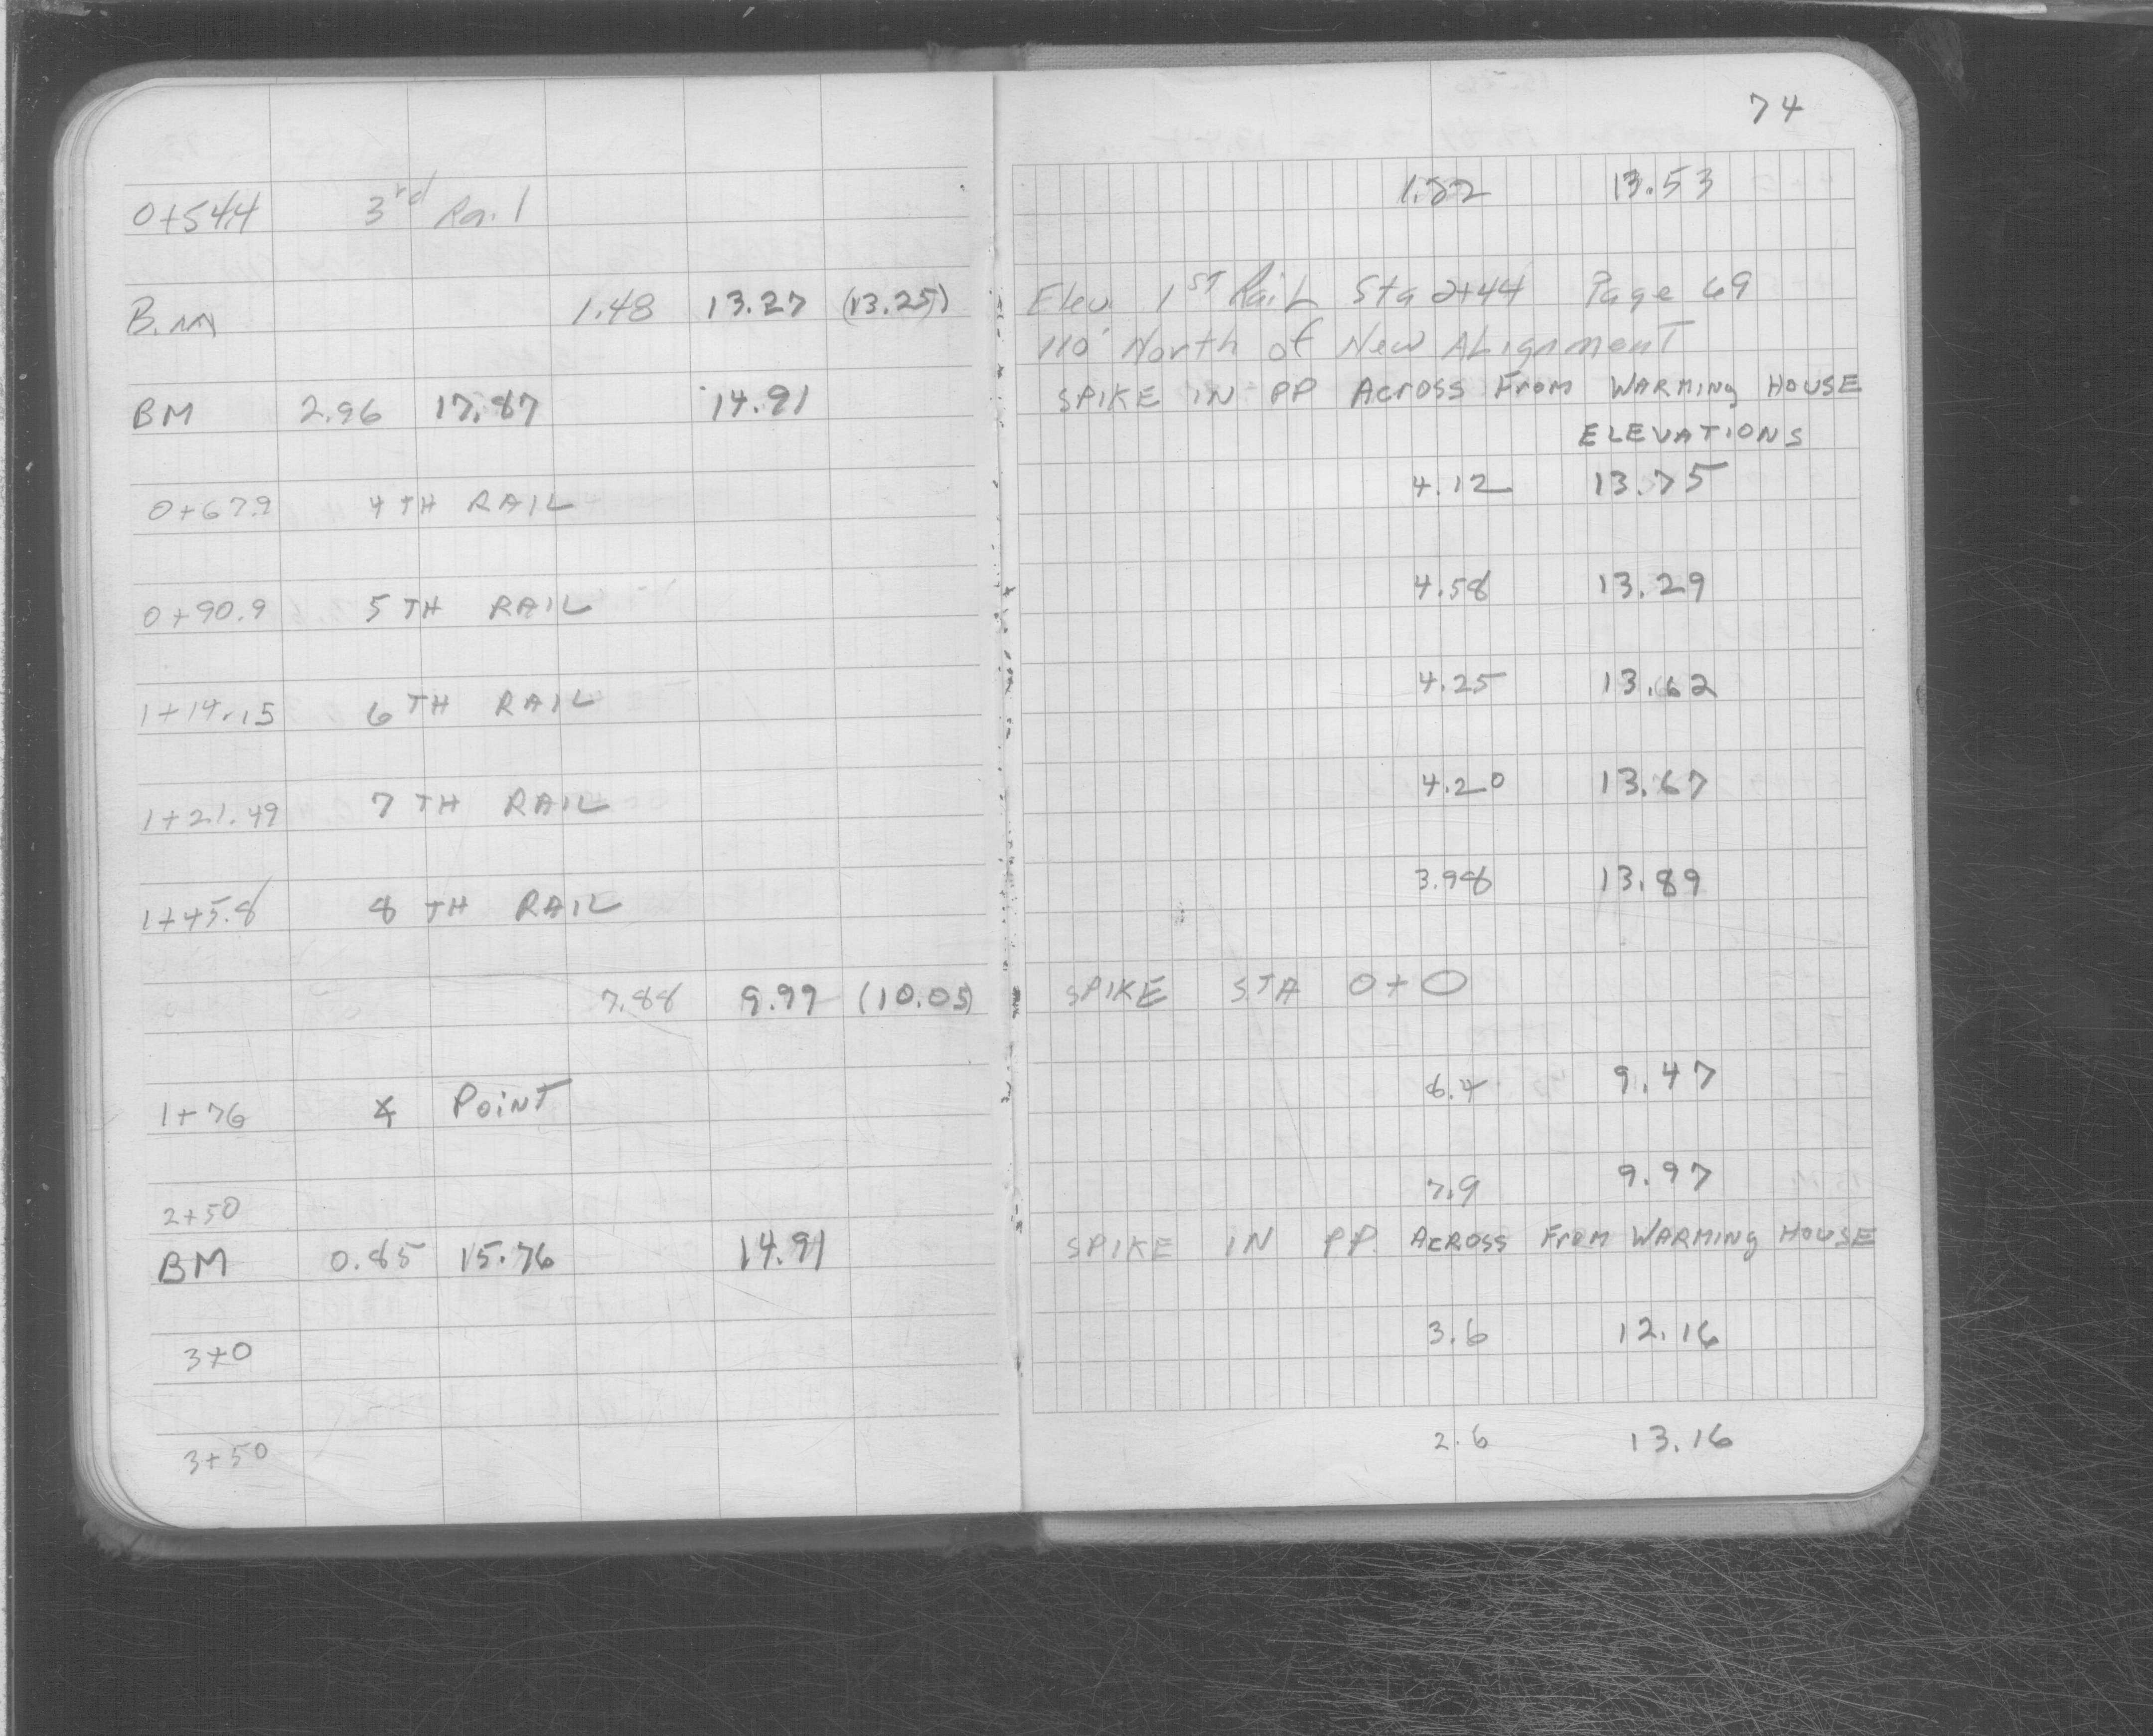 74
0+544 3rd Rail 1.22 13.53
B.M 1.48 13.27 (13.25) Elev. 1ST RaiL Sta 2+44 Page 69
110' North of New ALignmenT
BM 2.96 17.87 14.91 SPIKE IN PP Across From WARMINg HOUSE
ELEVATIONS
0+67.9 4TH RAIL 4.12 13.75
0+90.9 5TH RAIL 4.58 13.29
1+14.15 6TH RAIL 4.25 13.62
1+21.49 7TH RAIL 4.20 13.67
1+45.8 8TH RAIL 3.98 13.89
7.88 9.99 (10.05) SPIKE STA 0+0
1+76 ∡ POINT 8.4 9.47
2+50 7.9 9.97
BM 0.85 15.76 14.91 SPIKE IN PP. ACROSS From WARMINg HOUSE
3+0 3.6 12.16
3+50 2.6 13.16